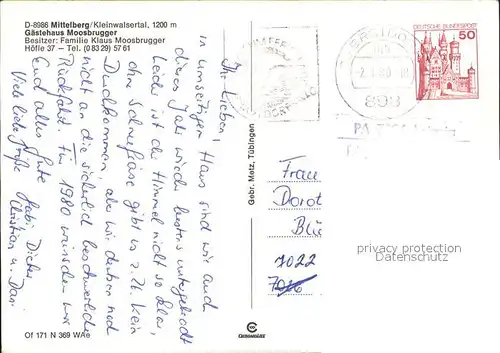 D-8986 Mittelberg/Kleinwalsertal, 1200 m
Gästehaus Moosbrugger
Besitzer: Familie Klaus Moosbrugger
Höfle 37 – Tel. (0 83 29) 57 61
Ihr Lieben!
in umseitigem Haus sind wir auch
dieses Jahr wieder bestens untergebracht
Leider ist der Himmel nicht so klar,
ohne Schneefräse gibt es z. Zt. kein
Durchkommen, aber wir denken noch
nicht an die sicherlich beschwerliche
Rückfahrt. Für 1980 wünschen wir
Euch alles Gute
Viele liebe Grüße
Gabi, Dieter
Christian u.
Of 171 N 369 WAe
Gebr. Metz, Tübingen
DEUTSCHE BUNDESPOST
50
893
Frau
Dorot
Blu
7022
7026
privacy protection
Datenschutz